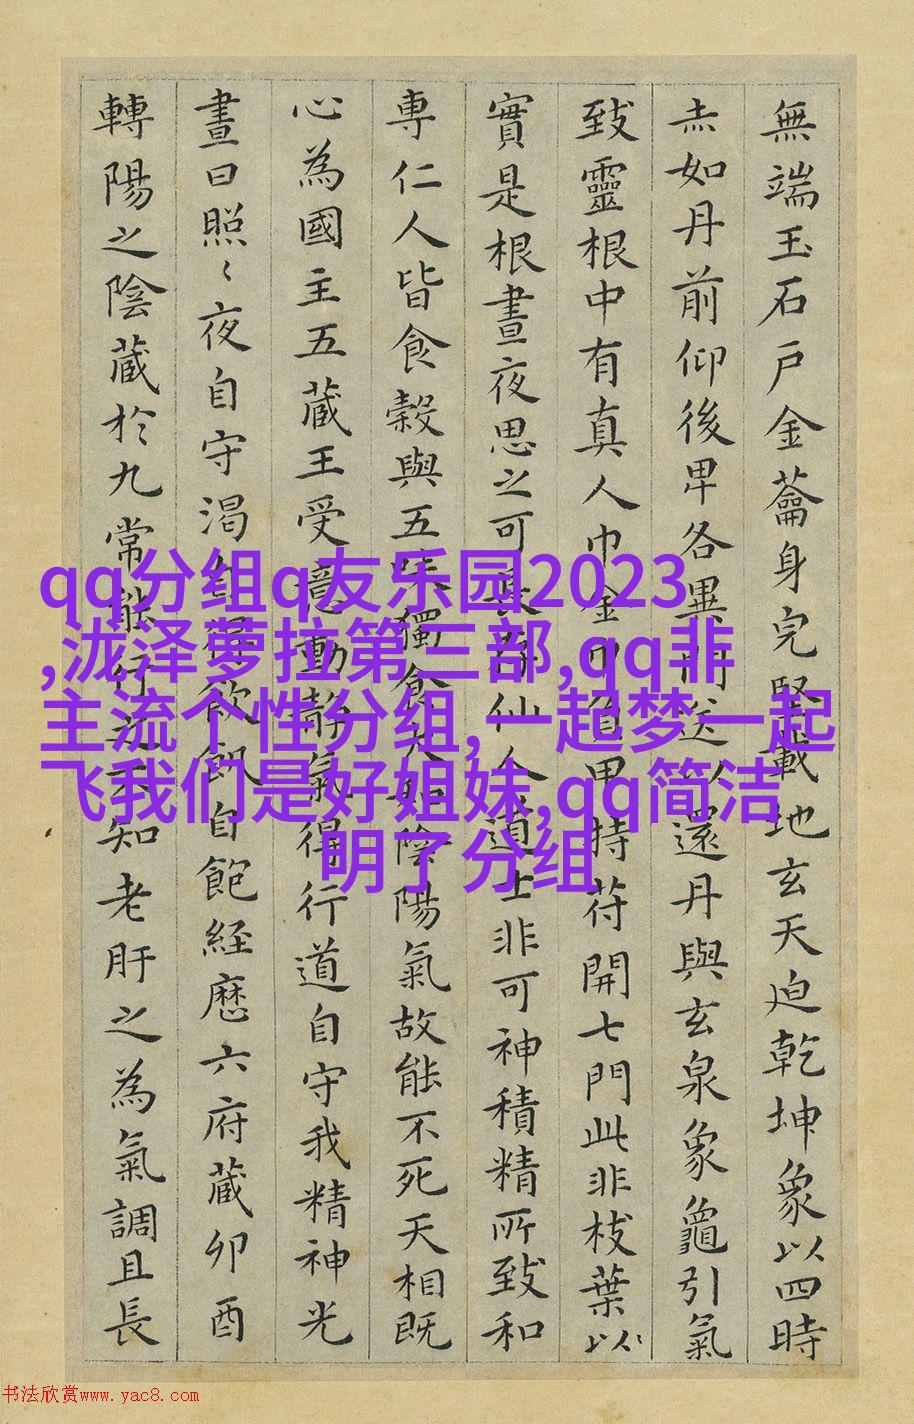 無端玉石戶金蘥身完堅載地玄天迫乾坤象以四時
赤如丹前仰後卑各異門送以還丹與玄泉象龜引氣
致靈根中有真人巾金巾負甲持符開七門此非枝葉以
實是根晝夜思之可長存仙人道士非可神積精所致和
專仁人皆食穀與五味獨食太和陰陽氣故能不死天相既
心為國主五藏王受意動靜氣得行道自守我精神光
晝日照〻夜自守渴自得飲飢自飽經歷六府藏卯酉
轉陽之陰藏於九常能行之不知老肝之為氣調且長
qq分组q友乐园2023
,泷泽萝拉第三部,qq非
主流个性分组,一起梦一起
飞我们是好姐妹,qq简洁
明了分组
书法欣赏www.yac8.com